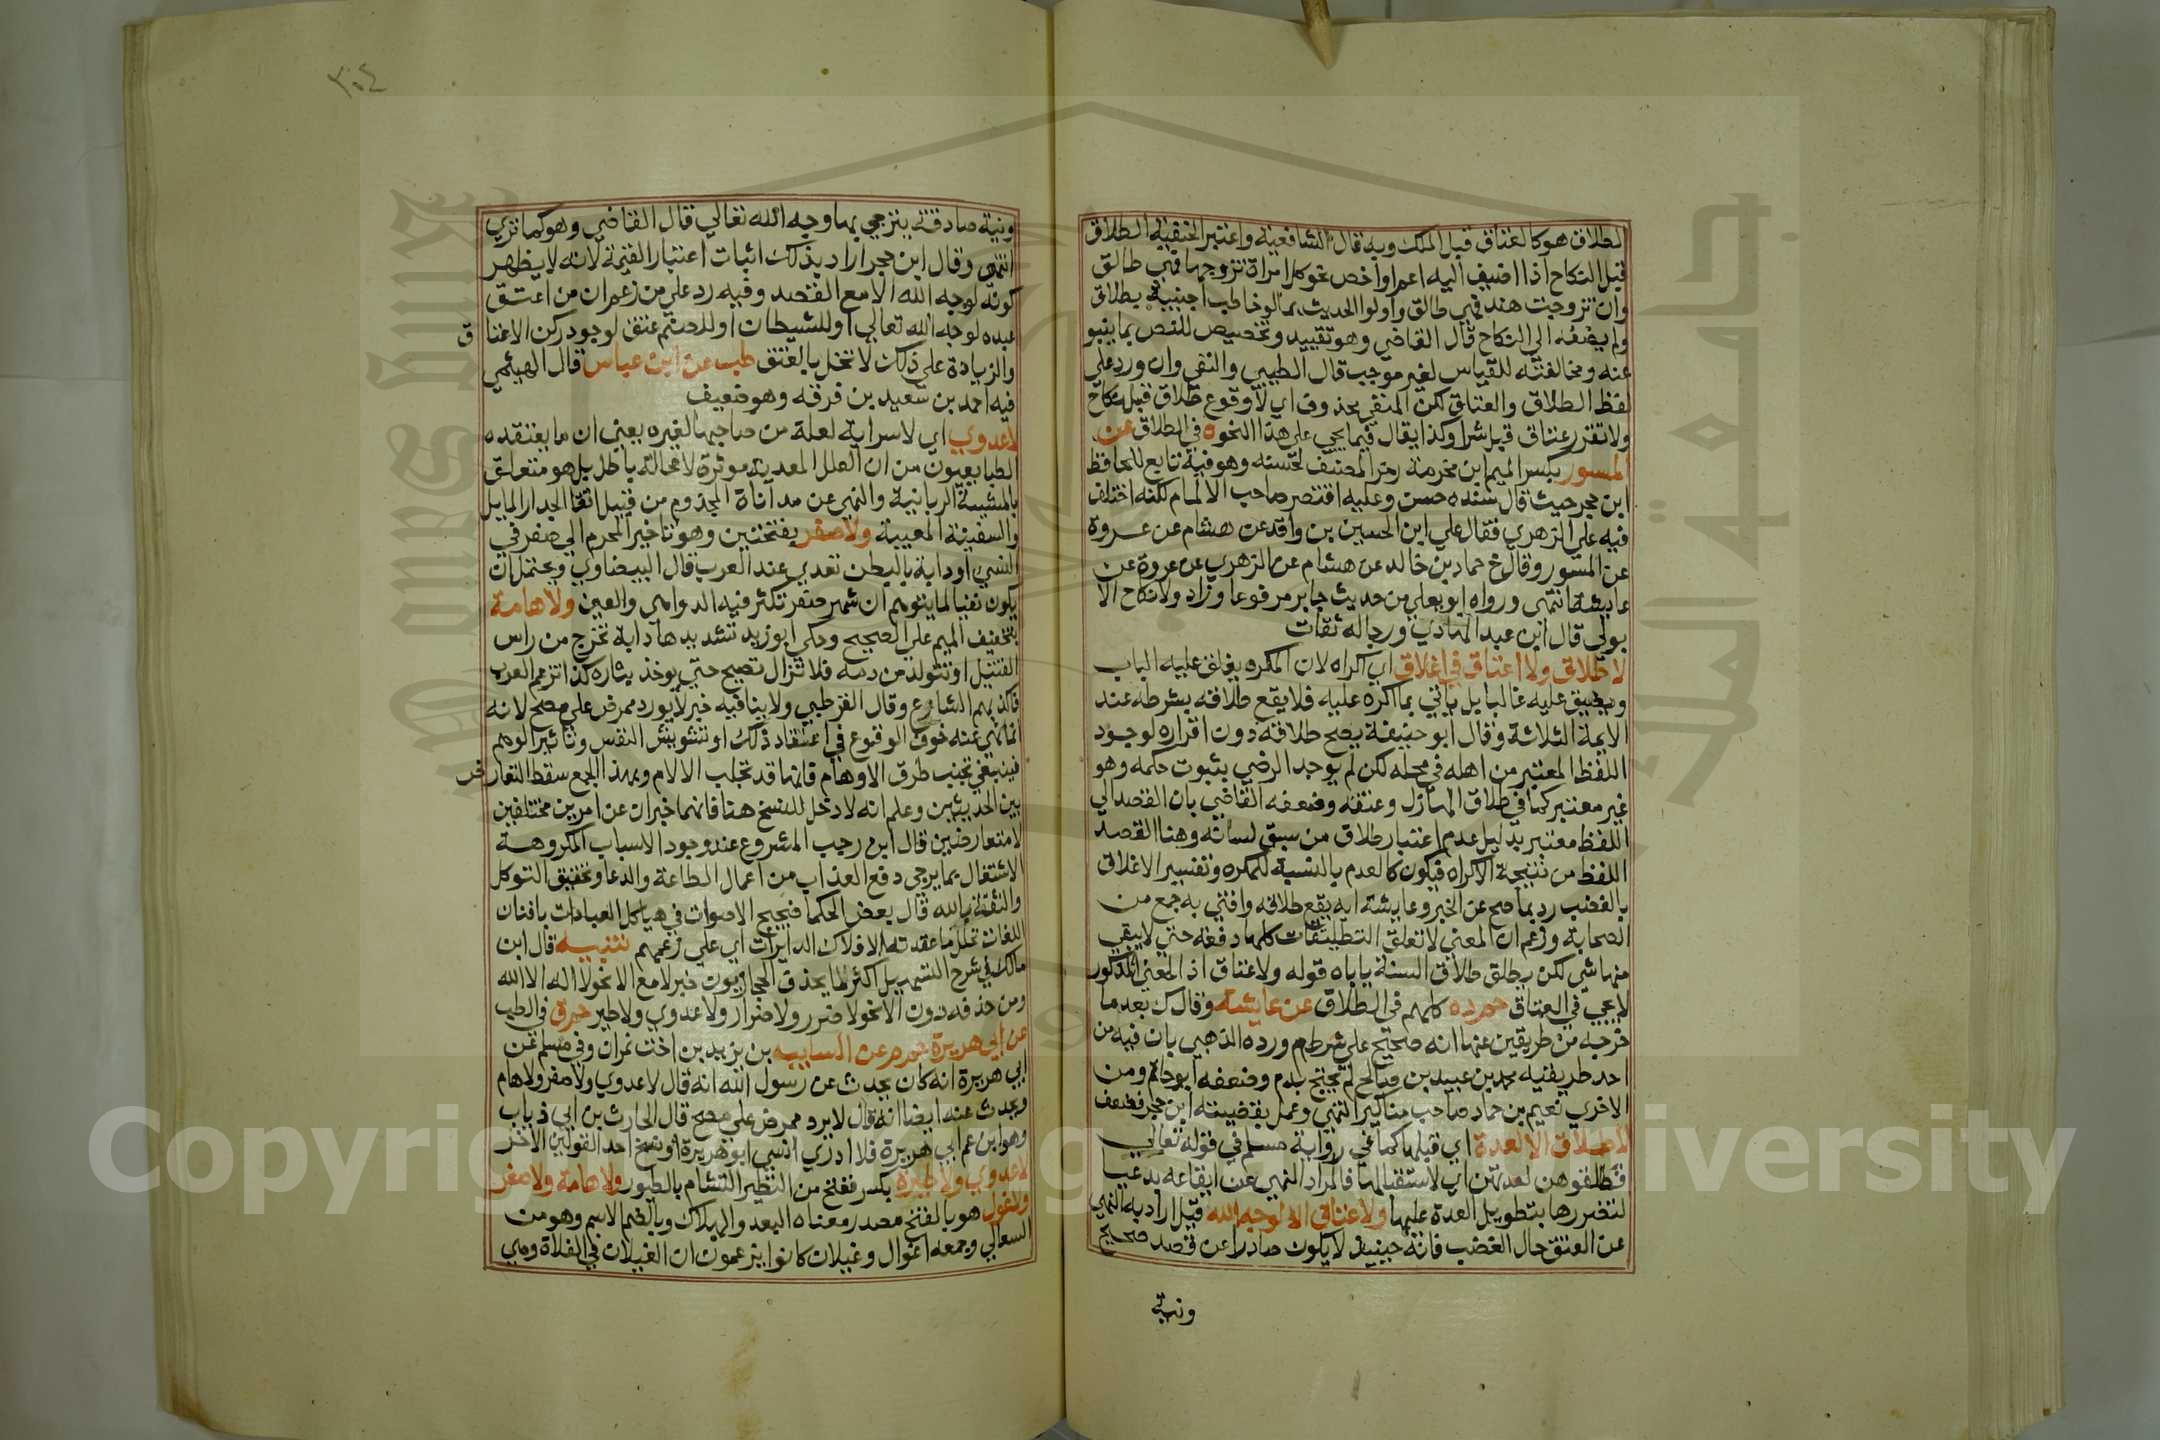 الطلاق هو كالعتاق قبل الملك وبه قال الشافعية واعتبر الحنفية الطلاق
قبل النكاح اذا اضيف اليه اعم او اخص نحو كل امراة تزوجها فهي طالق
وان تزوجت هند فهي طالق واولوا الحديث بما لو خاطب اجنبية بطلاق
ولم يضفه الي النكاح قال القاضي وهو تقييد وتخصيص للنص بما ينبو
عنه ومخالفته للقياس لغير موجب قال الطيبي والنفي وان ورد علي
لفظ الطلاق والعتاق لكن المنفي محذوف اي لا وقوع طلاق قبل نكاح
ولا تقرر عتاق قبل شرا وكذا يقال فيما يجي علي هذا النحو ه في الطلاق عن
المسور بكسر الميم ابن مخرمة رمز المصنف لحسنه وهو فيه تابع للحافظ
ابن حجر حيث قال سنده حسن وعليه اقتصر صاحب الالمام لكنه اختلف
فيه علي الزهري فقال علي ابن الحسين بن واقد عن هشام عن عروة
عن المسور وقال خ حماد بن خالد عن هشام عن الزهري عن عروة عن
عايشة انتهى ورواه ابو يعلي من حديث جابر مرفوعا وزاد ولا نكاح الا
بولي قال ابن عبد الهادي ورجاله ثقات
لا طلاق ولا اعتاق في اغلاق اي اكراه لان المكره يغلق عليه الباب
ويضيق عليه غالبا بل ياتي بما اكره عليه فلا يقع طلاقه بشرطه عند
الايمة الثلاثة وقال ابو حنيفة يصح طلاقه دون اقراره لوجود
اللفظ المعتبر من اهله في محله لكن لم يوجد الرضي بثبوت حكمه وهو
غير معتبر كما في طلاق الهازل وعتقه وضعفه القاضي بان القصد الي
اللفظ معتبر بدليل عدم اعتبار طلاق من سبق لسانه وهنا القصد
اللفظ من نتيجة الاكراه فيكون كالعدم بالنسبة للمكره وتفسير الاغلاق
بالغضب رد بما صح عن الحبر وعايشة انه يقع طلاقه وافتي به جمع من
الصحابة وزعم ان المعني لا تغلق التطليقات كلها دفعة حتي لا يبقي
منها شي لكن يطلق طلاق السنة ياباه قوله ولا عتاق اذ المعني المذكور
لا يجي في العتاق حم د ه ك كلهم في الطلاق عن عايشة وقال ك بعد ما
خرجه من طريقين عنها انه صحيح علي شرط م ورده الذهبي بان فيه من
احد طريقيه محمد بن عبيد بن صالح لم يحتج به م وضعفه ابو حاتم ومن
الاخري نعيم بن حماد صاحب مناكير انتهي وعمل بقضيته ابن حجر فضعف
لا طلاق الا لعدة اي قبلها كما في رواية مسلم في قوله تعالي
فطلقوهن لعدتهن اي لاستقبالها فالمراد النهي عن ايقاعه بدعيا
لتضررها بتطويل العدة عليها ولا عتاق الا لوجه الله قيل اراد به النهي
عن العتق حال الغضب فانه حينيذ لا يكون صادرا عن قصد صحيح
ونية
٣٠٤
ونية صادقة ينتزجي بها وجه الله تعالي قال القاضي وهو كما تري
انتهى وقال ابن حجر اراد بذلك اثبات اعتبار القيمة لانه لا يظهر
كونه لوجه الله الا مع القصد وفيه رد علي من زعم ان من اعتق
عبده لوجه الله تعالي او للشيطان او للصنم عتق لوجود ركن الاعتاق
والزيادة علي ذلك لا تخل بالعتق طب عن ابن عباس قال الهيثمي
فيه احمد بن سعيد بن فرقد وهو ضعيف
لا عدوي اي لا سراية لعلة من صاحبها لغيره يعني ان ما يعتقده
الطبايعيون من ان العلل المعدية موثرة لا محالة باطل بل هو متعلق
بالمشيئة الربانية والنهي عن مداناة المجذوم من قبيل اتقا الجدار المايل
والسفينة المعيبة ولا صفر بفتحتين وهو تاخير المحرم الي صفر في
النسي او دابة بالبطن تعدي عند العرب قال البيضاوي ويحتمل ان
يكون نفيا لما يتوهم ان شهر صفر تكثر فيه الدواهي والفتن ولا هامة
بتخفيف الميم علي الصحيح وحكي ابو زيد تشديدها دابة تخرج من راس
القتيل او تتولد من دمه فلا تزال تصيح حتي يوخذ بثاره كذا تزعم العرب
فاكذبهم الشارع وقال القرطبي ولا ينافيه خبر لا يورد ممرض علي مصح لانه
انما نهي عنه خوف الوقوع في اعتقاد ذلك او تشويش النفس وتاثير الوهم
فينبغي تجنب طرق الاوهام فانها قد تجلب الالام وبهذا الجمع سقط التعارض
بين الحديثين وعلم انه لا دخل للنسخ هنا فانهما خبران عن امرين مختلفين
لا متعارضين قال ابن رجب المشروع عند وجود الاسباب المكروهة
الاشتغال بما يرجي دفع العذاب من اعمال الطاعة والدعا وتحقيق التوكل
والثقة بالله قال بعض الحكما ضجيج الاصوات في هياكل العبادات بافنان
اللغات تحلل ما عقدته الافلاك الدايرات اي علي زعمهم تنبيه قال ابن
مالك في شرح التسهيل اكثر ما يحذف الحجازيون خبر لا مع الا نحو لا اله الا الله
ومن حذفه دون الا نحو لا ضرر ولا ضرار ولا عدوي ولا طيرة حم ق في الطب
عن ابي هريرة حم م عن السايب بن يزيد بن اخت نمران وفي مسلم عن
ابي هريرة انه كان يحدث عن رسول الله انه قال لا عدوي ولا صفر ولا هام
ويحدث عنه ايضا انه قال لا يرد ممرض علي مصح قال الحارث بن ابي ذباب
وهو ابن عم ابي هريرة فلا ادري انسي ابو هريرة او نسخ احد القولين الاخر
لا عدوي ولا طيرة بكسر ففتح من التطير التشام بالطيور ولا هامة ولا صفر
ولا غول هو بالفتح مصدر معناه البعد والهلاك وبالضم الاسم وهو من
السعالي وجمعه اغوال وغيلان كانوا يزعمون ان الغيلان في الفلاة وهي